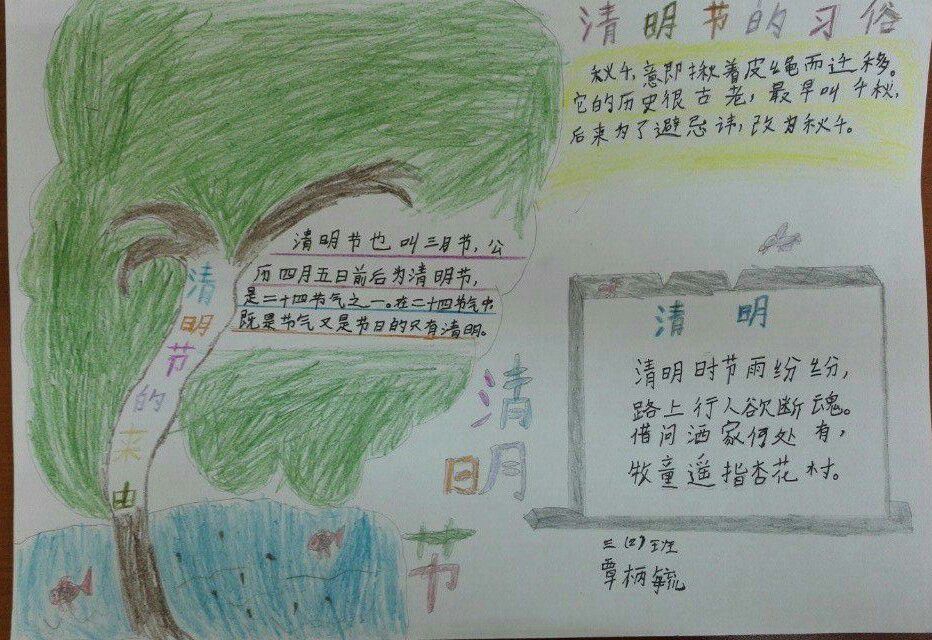 清明节的习俗
秋千,意即揪着皮绳而迁移。
它的历史很古老,最早叫千秋,
后来为了避忌讳,改为秋千。
清明节的来由
清明节也叫三月节,公
历四月五日前后为清明节,
是二十四节气之一。在二十四节气中
既是节气又是节日的只有清明。
清明节
清明
清明时节雨纷纷,
路上行人欲断魂。
借问酒家何处有,
牧童遥指杏花村。
三(2)班
覃柄毓